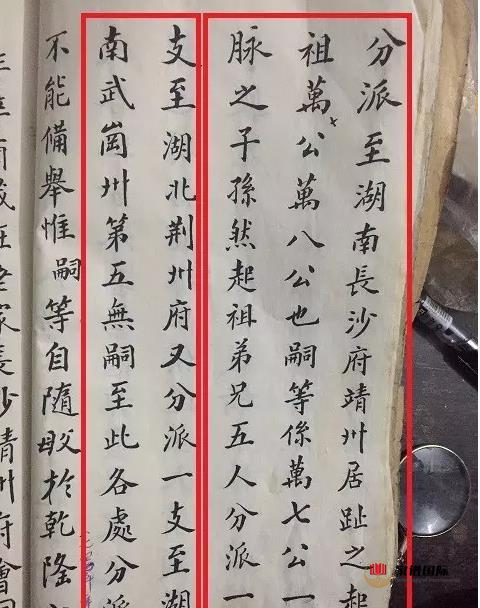 分派至湖南長沙府靖州居趾之起
祖萬公萬八公也嗣等係萬七公一
脉之子孫然起祖弟兄五人分派一
支至湖北荆州府又分派一支至湖
南武崗州第五無嗣至此各處分派
不能備舉惟嗣等自隨敃於乾隆
家谱国际